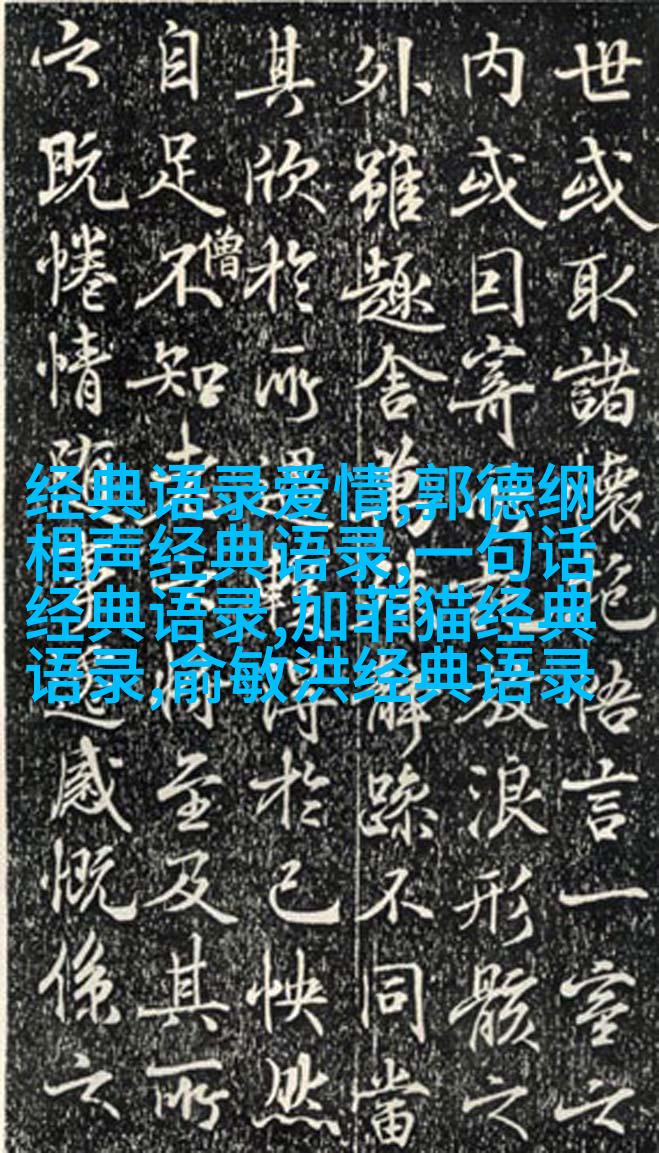 世或取諸懷抱悟言一室之
内或因寄放浪形骸之
外雖趣舍萬躁不同當
其欣於所遇得於己怏然
自足不知老將至及其所
僧
之既惓情随遷感慨係之
经典语录爱情,郭德纲
相声经典语录,一句话
经典语录,加菲猫经典
语录,俞敏洪经典语录